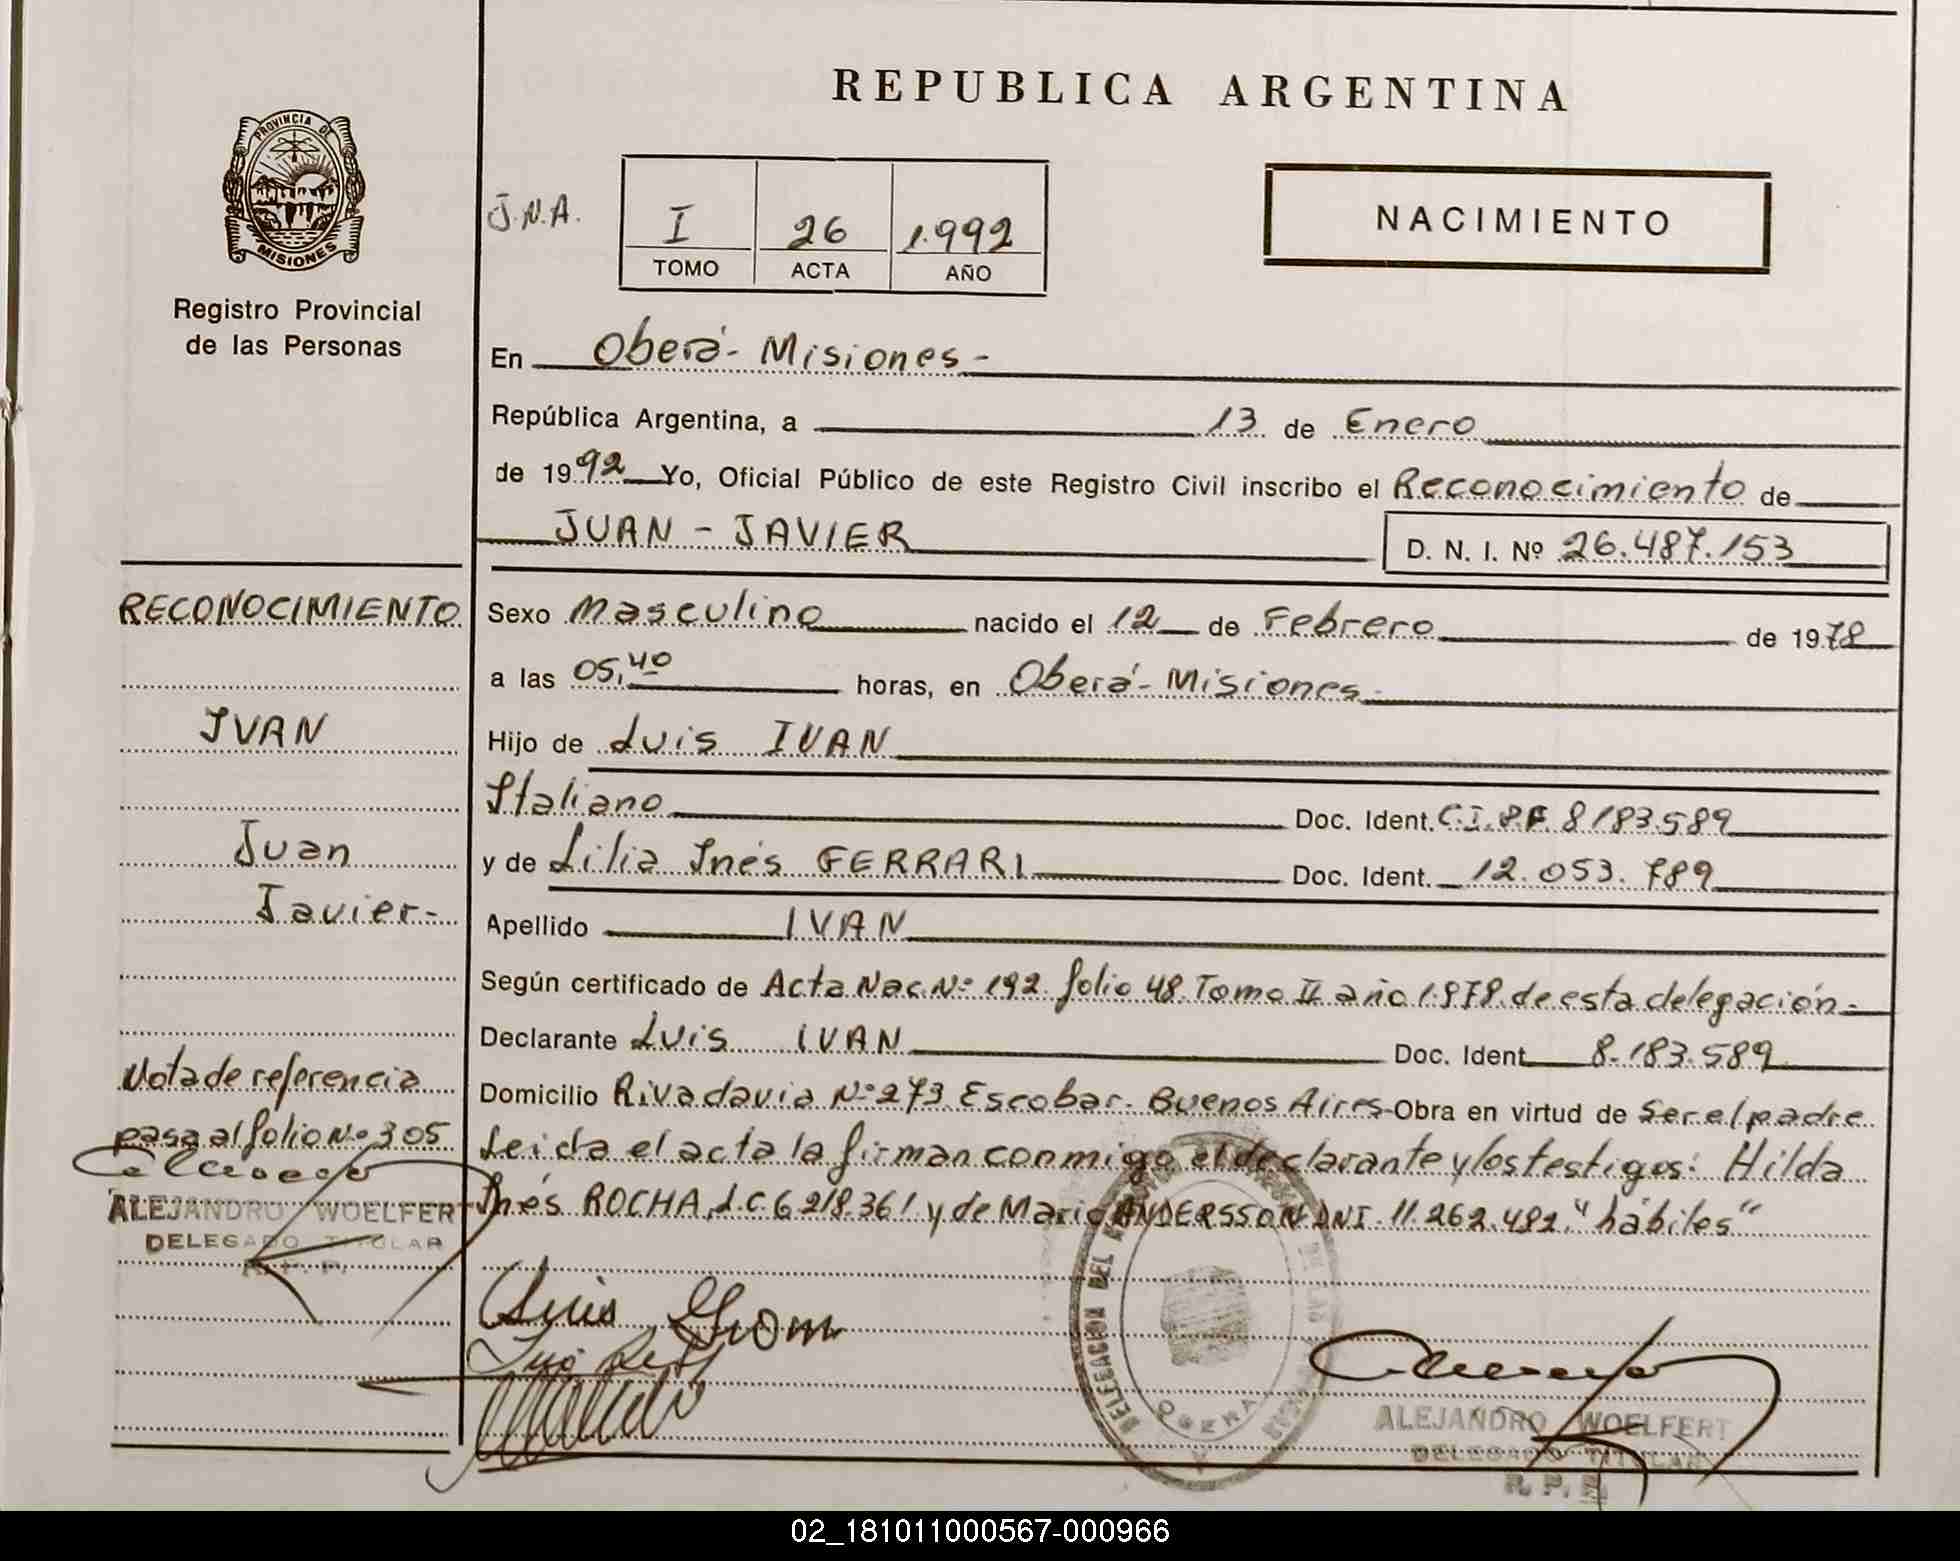 REPUBLICA ARGENTINA
PROVINCIA DE
MISIONES
Registro Provincial
de las Personas
J.N.A.
I 26 1.992
TOMO ACTA AÑO
NACIMIENTO
En Oberá- Misiones-
República Argentina, a 13 de Enero
de 1992 Yo, Oficial Público de este Registro Civil inscribo el Reconocimiento de
JUAN - JAVIER
D. N. I. Nº 26.487.153
Sexo Masculino nacido el 12 de Febrero de 1978
a las 05,40 horas, en Oberá- Misiones-
Hijo de Luis IVAN
Italiano Doc. Ident. C.I.P.F. 8183.589
y de Lilia Inés FERRARI Doc. Ident. 12.053.789
Apellido IVAN
Según certificado de Acta Nac. Nº 192 folio 48 Tomo II año 1.978 de esta delegación-
Declarante Luis IVAN Doc. Ident. 8.183.589
Domicilio Rivadavia Nº 273 Escobar- Buenos Aires- Obra en virtud de Ser el padre
Leida el acta la firman conmigo el declarante y los testigos: Hilda
Inés ROCHA, L.C. 6.218.361 y de Mario ANDERSSON DNI. 11.262.482. "hábiles"
RECONOCIMIENTO
IVAN
Juan
Javier-
Nota de referencia
pasa al folio Nº 305
ALEJANDRO WOELFERT
DELEGADO TITULAR
R. P. P.
Luis
DELEGACION DEL
OBERA
ALEJANDRO WOELFERT
DELEGADO TITULAR
R. P. P.
02_181011000567-000966